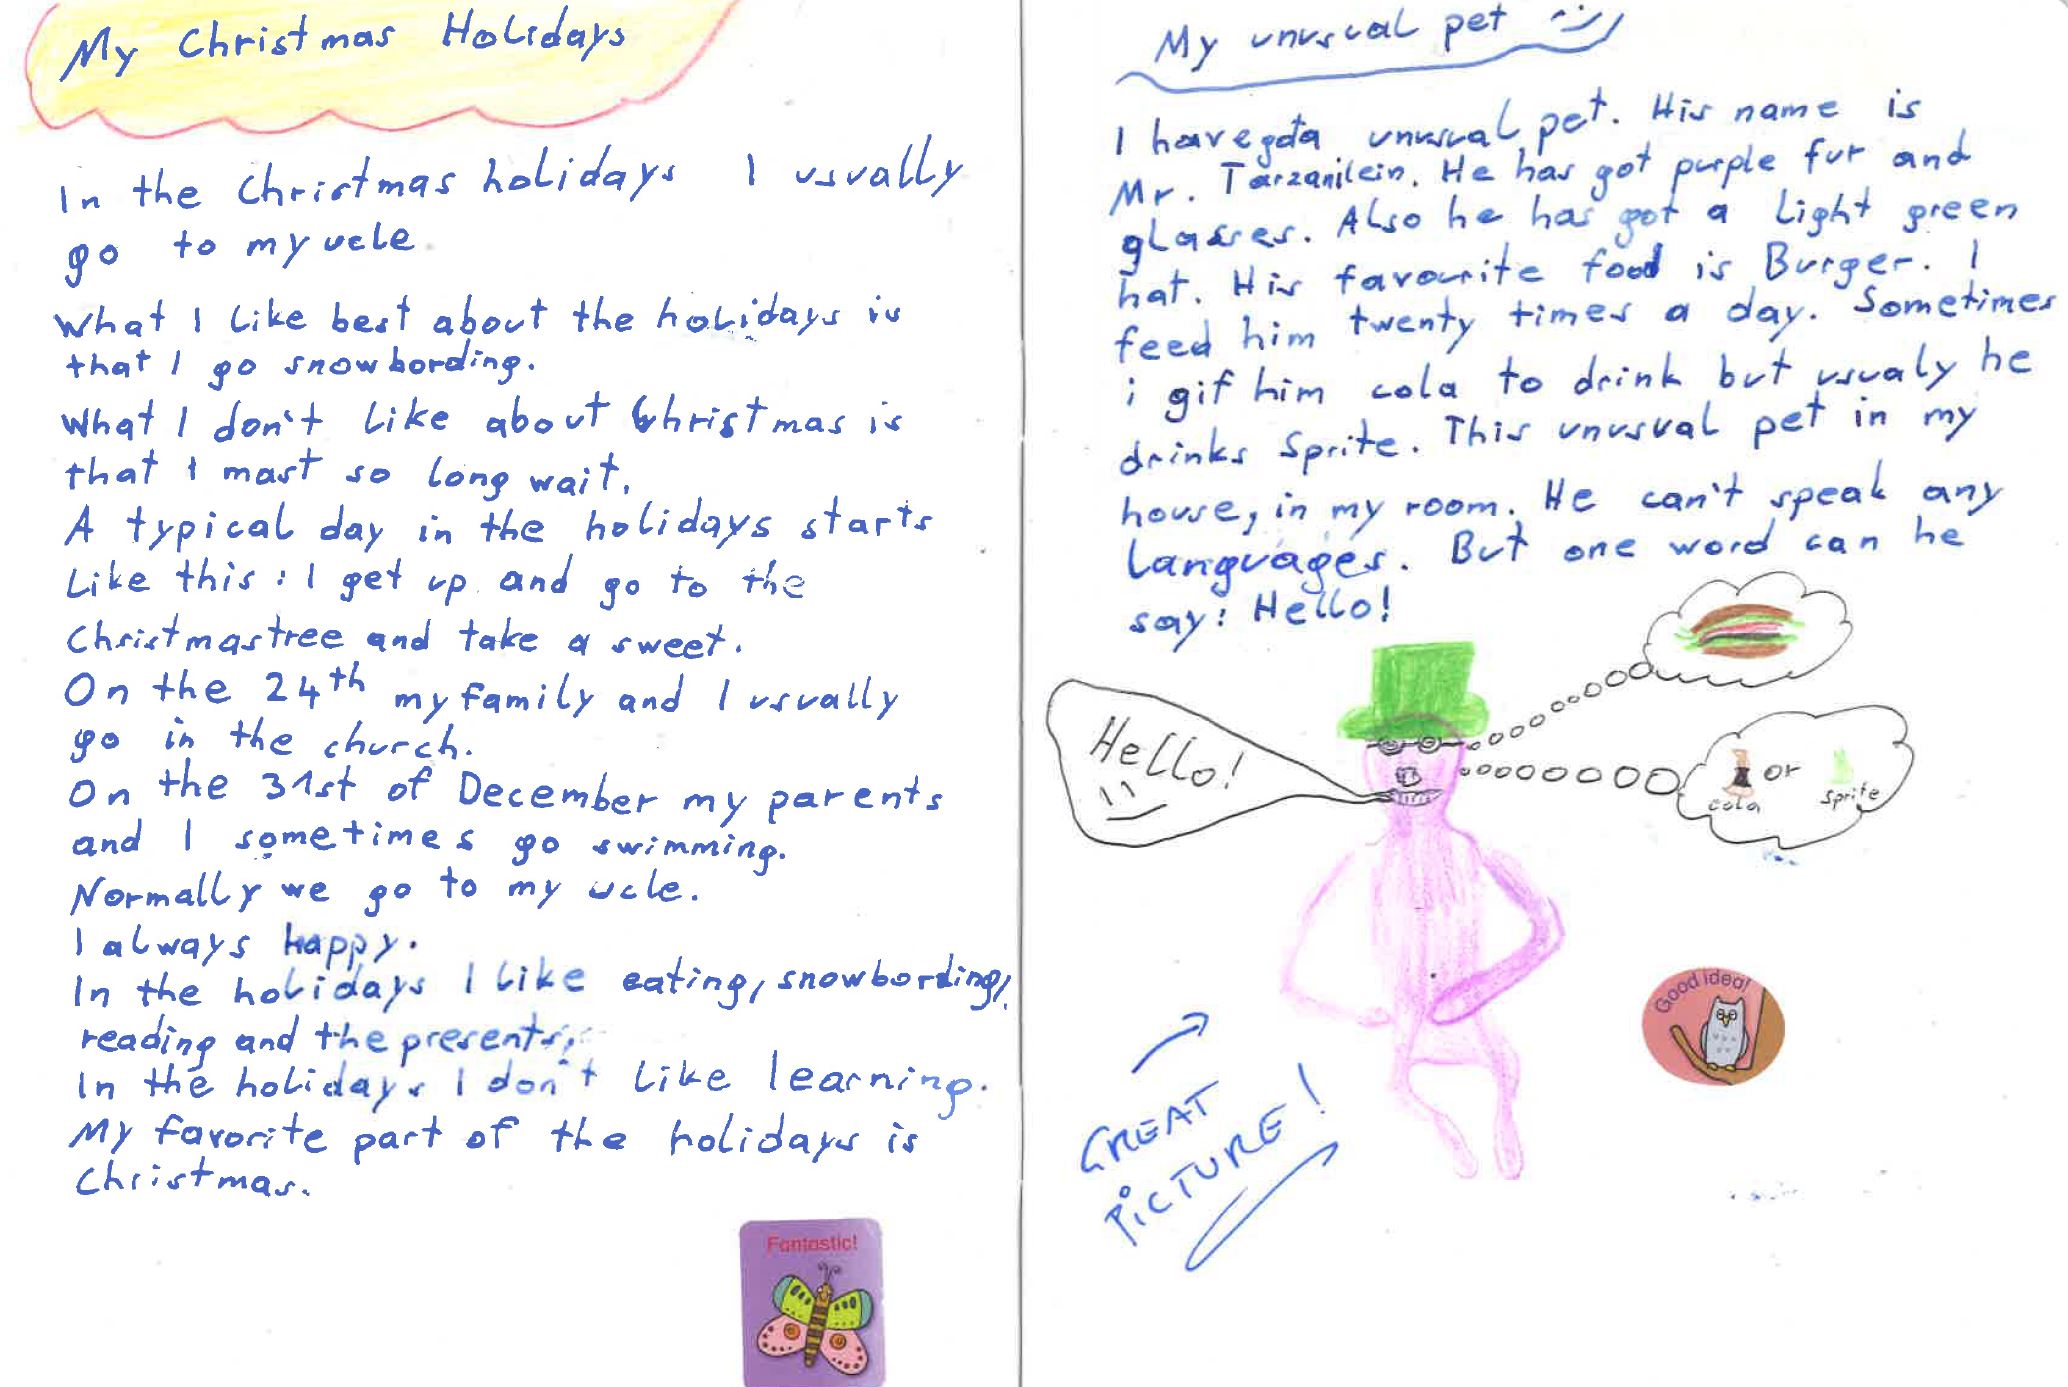 My Christmas Holidays
In the Christmas holidays I usually
go to my ucle
What I like best about the holidays is
that I go snowbording.
What I don't like about Christmas is
that I mast so long wait.
A typical day in the holidays starts
Like this: I get up and go to the
Christmastree and take a sweet.
On the 24th my family and I usually
go in the church.
On the 31st of December my parents
and I sometimes go swimming.
Normally we go to my ucle.
I always happy.
In the holidays I like eating, snowbording,
reading and the presents.
In the holidays I don't like learning.
My favorite part of the holidays is
Christmas.
Fantastic!
My unusual pet
I have gota unusual pet. His name is
Mr. Tarzanilein. He has got purple fur and
glasses. Also he has got a light green
hat. His favourite food is Burger. I
feed him twenty times a day. Sometimes
i gif him cola to drink but usualy he
drinks Sprite. This unusual pet in my
house, in my room. He can't speak any
languages. But one word can he
say: Hello!
Hello!
or
cola
Sprite
Good idea!
GREAT
PICTURE!